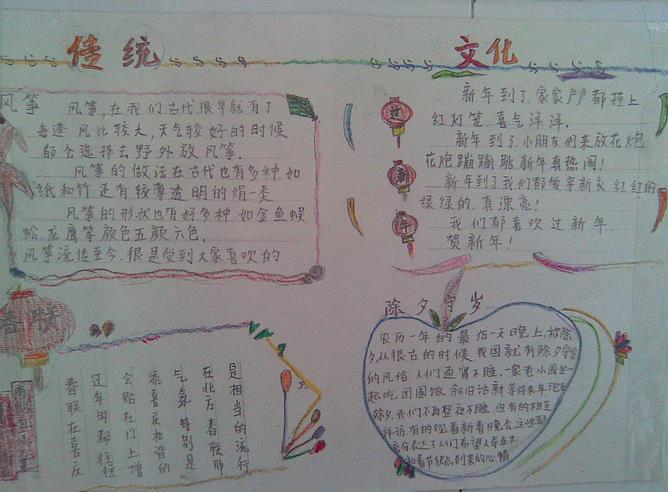 传统 文化
风筝
风筝，在我们古代很早就有了
每逢风比较大，天气较好的时候
都会选择去野外放风筝。
风筝的做法在古代也有多种.如
纸和竹还有较薄透明的绢一类
风筝的形状也有好多种 如金鱼蜈
蚣龙鹰等颜色五颜六色.
风筝流传至今.很是受到大家喜欢的
贺新年
新年到了.家家户户都挂上
红灯笼喜气洋洋.
新年到了小朋友们来放花炮
花炮蹦蹦跳新年真热闹!
新年到了我们都做穿新衣 红红的
绿绿的.真漂亮!
我们都喜欢过新年.
贺新年!
春联
是相当的流行
在北方春联那
气氛 特别是
添喜庆和谐的
会贴在门上增
过年时都往往
春联在喜庆
除夕守岁
农历一年的最后一天晚上.被称除
夕从很古的时候 我国就有除夕守岁
的风俗 人们通宵不睡.一家老小围坐一
起吃团圆饭 叙旧话新等待来年现在
除夕.我们不再整夜不睡.但有的相互
拜访.有的观看新春晚会.这些都
充分表达了人们希望人寿年丰
和春节快点到来的心情